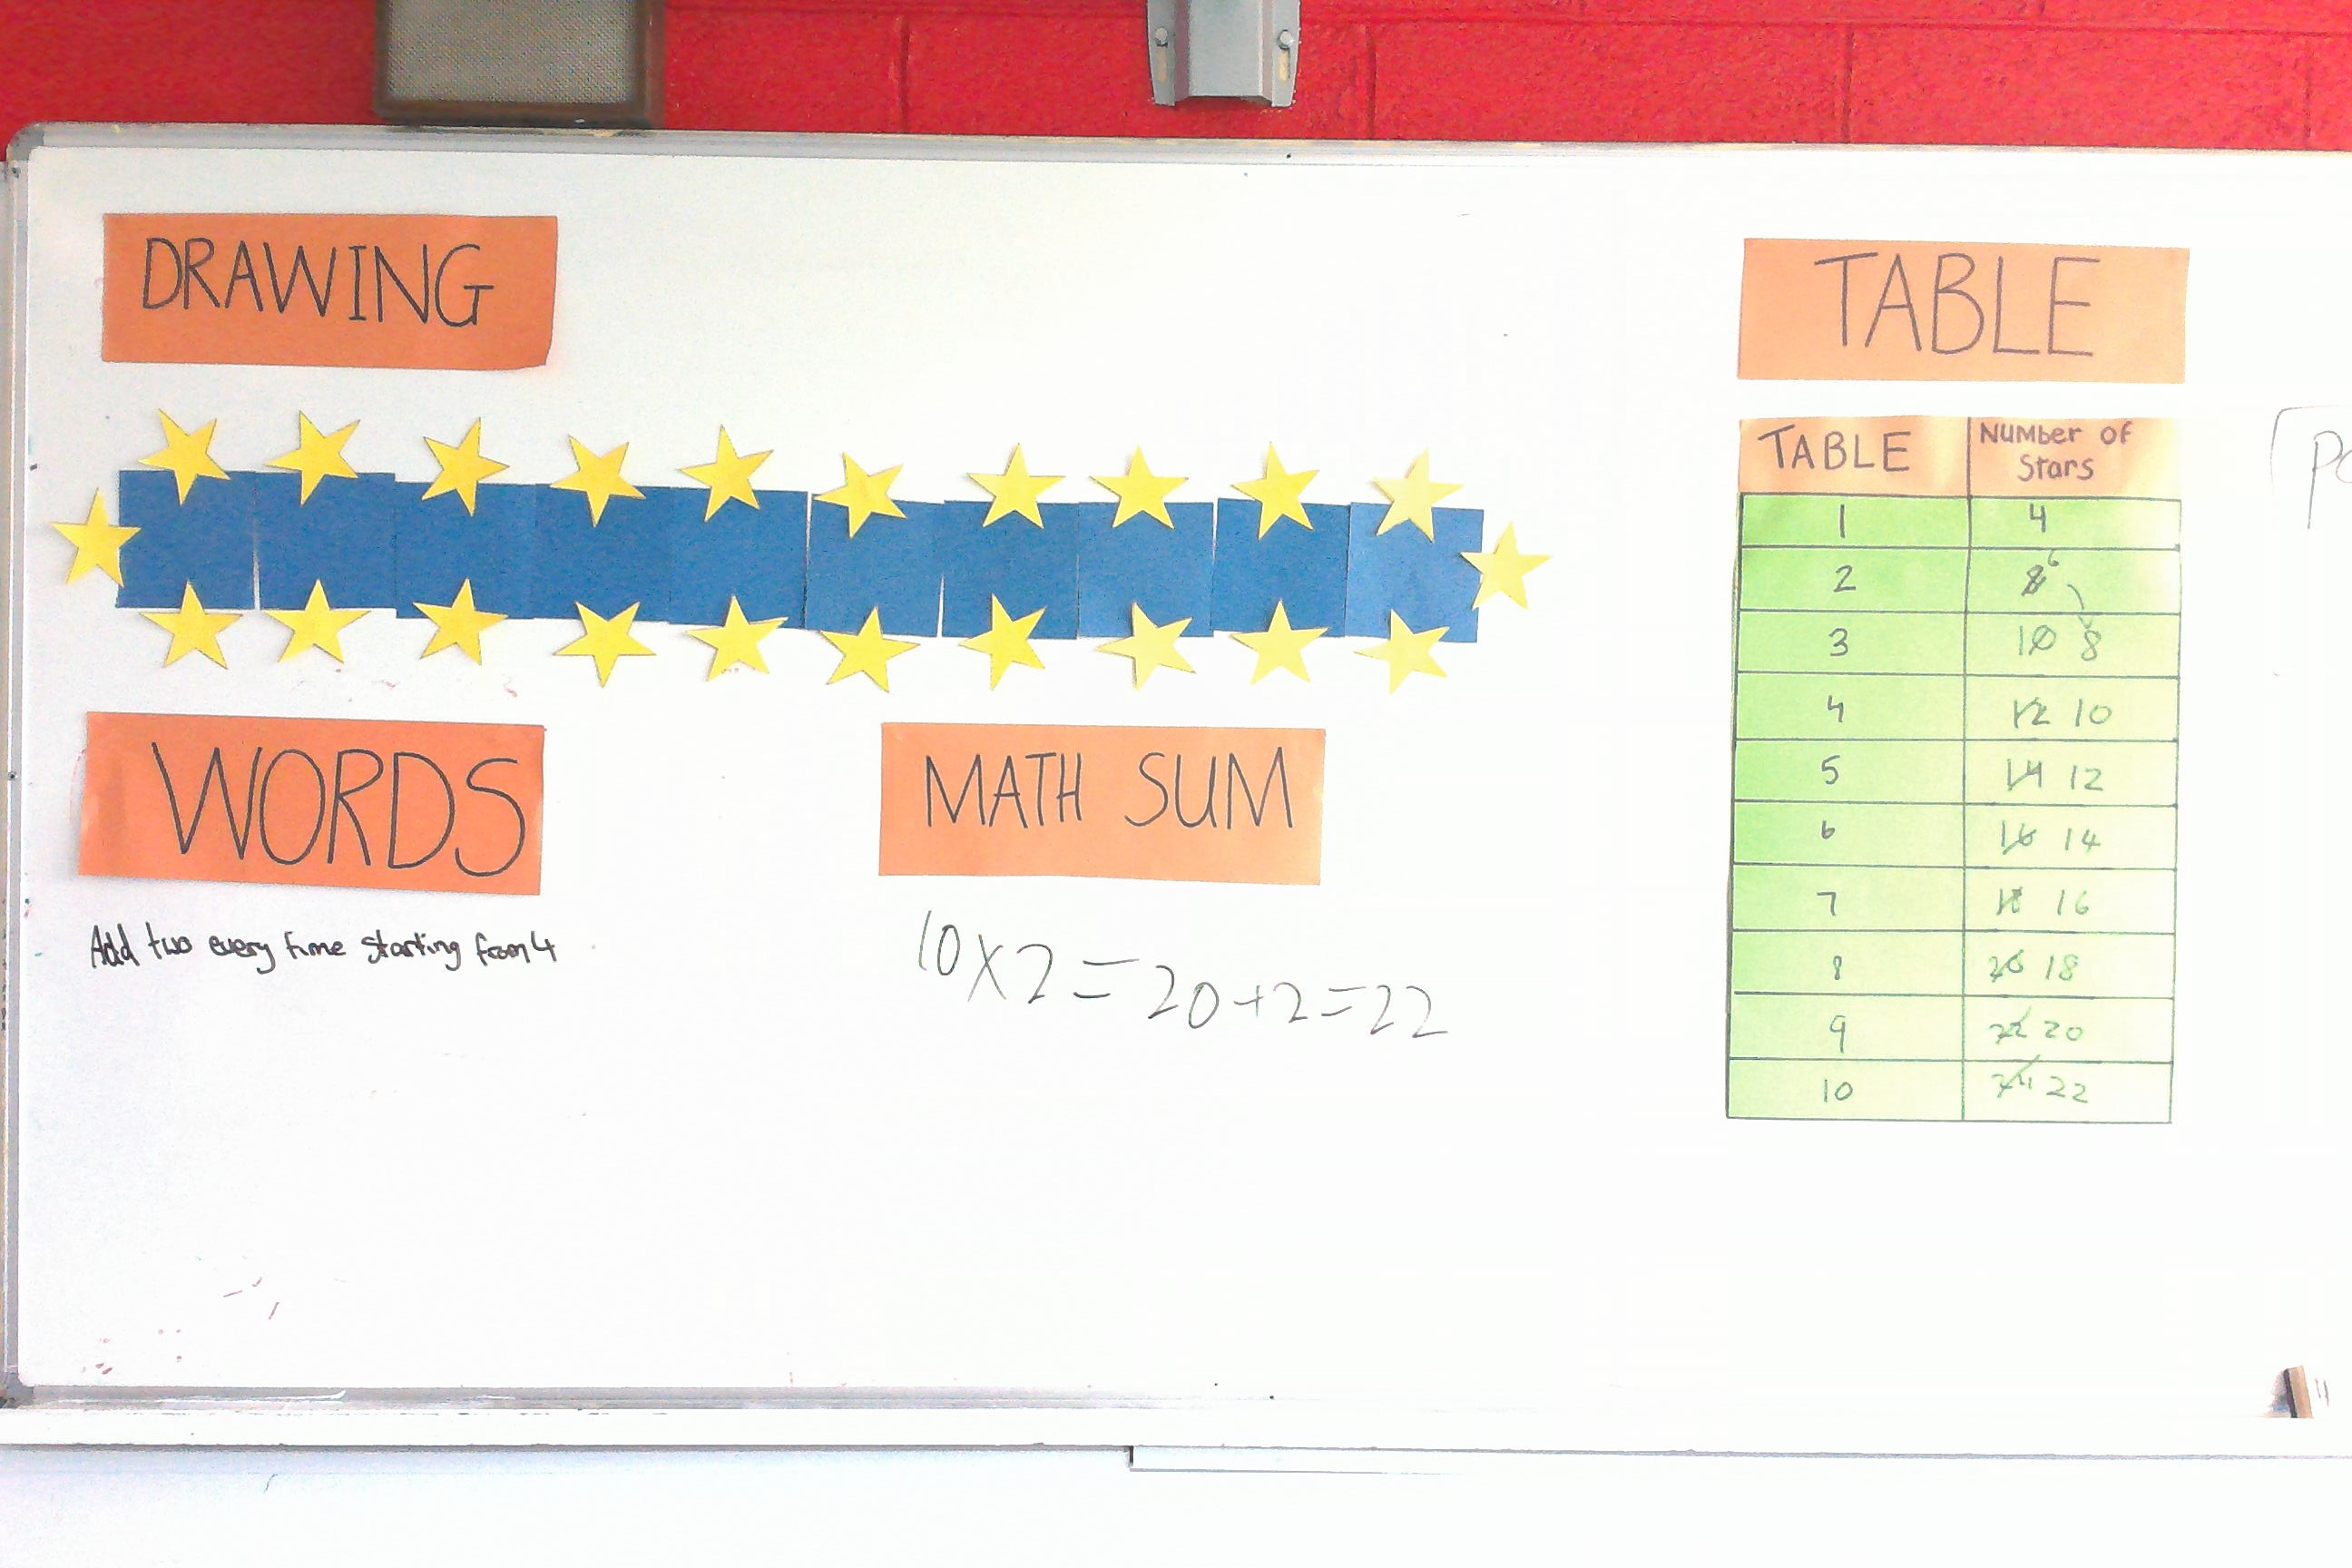 DRAWING
TABLE
TABLE Number of Stars
1 4
2 8 6
3 10 8
4 12 10
5 14 12
6 16 14
7 18 16
8 20 18
9 22 20
10 24 22
WORDS
MATH SUM
Add two every time starting from 4
10x2=20+2=22